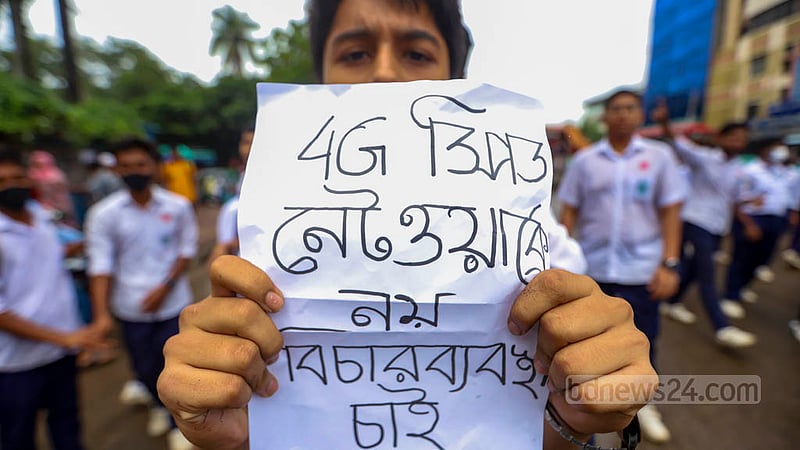 4G স্পিড
নেটওয়ার্কে
নয়
বিচারব্যবস্থা
চাই
bdnews24.com